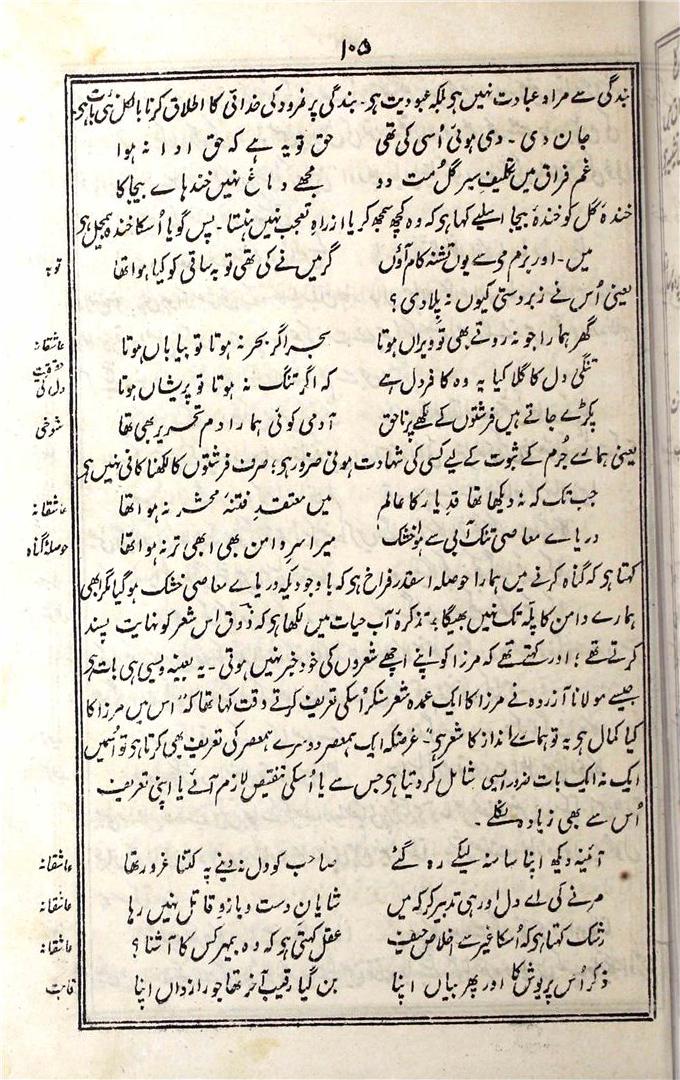 ۱۰۵
بندگی سے مراد عبادت نہیں ہی بلکہ عبودیت ہی۔ بندگی پر نمرود کی خدائی کا اطلاق کرنا بالکل نئی بات ہی
جان دی۔ دی ہوئی اُسی کی تھی حق تو یہ ہے کہ حق ادا نہ ہوا
غمِ فراق میں تکلیفِ سیرِ گل مت دو مجھے دماغ نہیں خندہاے بیجا کا
خندۂ گل کو خندۂ بیجا اسلیے کہا ہی کہ وہ کچھ سمجھ کر یا ازراہِ تعجب نہیں ہنستا۔ پس گویا اُسکا خندہ بیمحل ہی
میں۔ اور بزمِ می سے یوں تشنہ کام آؤں گر میں نے کی تھی توبہ ساقی کو کیا ہوا تھا توبہ
یعنی اُس نے زبردستی کیوں نہ پلادی؟
گھر ہمارا جو نہ روتے بھی تو ویراں ہوتا بحر اگر بحر نہ ہوتا تو بیاباں ہوتا عاشقانہ
تنگیِ دل کا گلا کیا یہ وہ کافر دل ہے کہ اگر تنگ نہ ہوتا تو پریشاں ہوتا حقیقت دل کی
پکڑے جاتے ہیں فرشتوں کے لکھے پر ناحق آدمی کوئی ہمارا دمِ تحریر بھی تھا شوخی
یعنی ہمارے جُرم کے ثبوت کے لیے کسی کی شہادت ہونی ضرور ہی؛ صرف فرشتوں کا لکھنا کافی نہیں ہی
جب تک کہ نہ دیکھا تھا قدِ یار کا عالم میں معتقدِ فتنۂ محشر نہ ہوا تھا عاشقانہ
دریاے معاصی تنک آبی سے ہوا خشک میرا سرِ دامن بھی ابھی تر نہ ہوا تھا حوصلۂ گناہ
کہتا ہی کہ گناہ کرنے میں ہمارا حوصلہ اسقدر فراخ ہی کہ باوجودیکہ دریاے معاصی خشک ہوگیا مگر ابھی
ہمارے دامن کا پلّہ تک نہیں بھیگا، تذکرۂ آبِ حیات میں لکھا ہی کہ ذوق اس شعر کو نہایت پسند
کرتے تھے؛ اور کہتے تھے کہ مرزا کو اپنے اچھے شعروں کی خود خبر نہیں ہوتی۔ یہ بعینہ ویسی ہی بات ہی
جیسے مولانا آزردہ نے مرزا کا ایک عمدہ شعر سنکر اُسکی تعریف کرتے وقت کہا تھا کہ "اس میں مرزا کا
کیا کمال ہی یہ تو ہمارے انداز کا شعر ہی"۔ غرضکہ ایک ہمعصر دوسرے ہمعصر کی تعریف بھی کرتا ہی تو اُسمیں
ایک نہ ایک بات ضرور ایسی شامل کردیتا ہی جس سے یا اُسکی تنقیص لازم آئے یا اپنی تعریف
اُس سے بھی زیادہ نکلے۔
آئینہ دیکھ اپنا سا منہ لیکے رہ گئے صاحب کو دل نہ دینے پہ کتنا غرور تھا عاشقانہ
مرنے کی اے دل اور ہی تدبیر کر کہ میں شایانِ دست و بازوے قاتل نہیں رہا عاشقانہ
رشک کہتا ہی کہ اُسکا غیر سے اخلاص حیف عقل کہتی ہو کہ وہ بیمہر کس کا آشنا؟ عاشقانہ
ذکر اُس پریوش کا اور پھر بیاں اپنا بن گیا رقیب آخر تھا جو رازداں اپنا